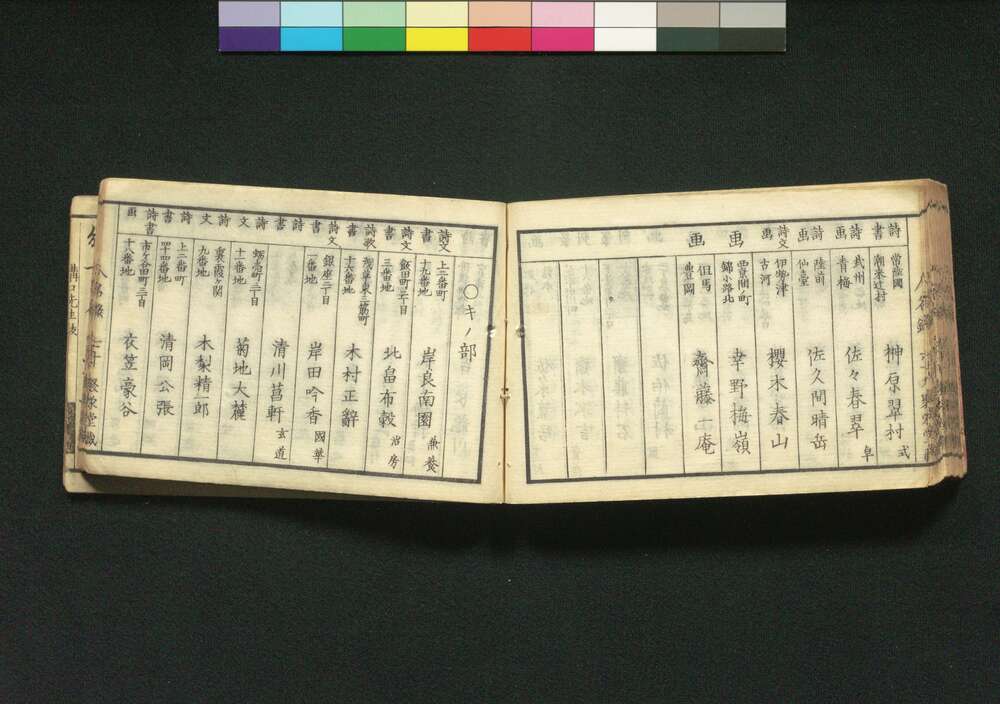 詩書 常陸國潮来辻村 榊原翠村 式
詩書 武州青梅 佐々春翠 阜
詩画 陸前仙臺 佐久間晴岳
詩文画 伊勢津古河 櫻木春山
画 西京間ノ町錦小路北 幸野梅嶺
画 但馬豊岡 齋藤一庵
○キノ部
詩文書 上二番町十九番地 岸良南園 兼養
詩文書 飯田町二丁目三番地 北畠布穀 治房
詩歌書 十六番地 木村正辭
詩文書 銀座二丁目一番地 岸田吟香 國華
詩書 清川菖軒 玄道
詩文 十一番地 菊地大麓
詩文 裏霞ヶ関九番地 木梨精一郎
詩書 上二番町四十四番地 清岡公張
詩書画 市ヶ谷田町二丁目十八番地 衣笠豪谷